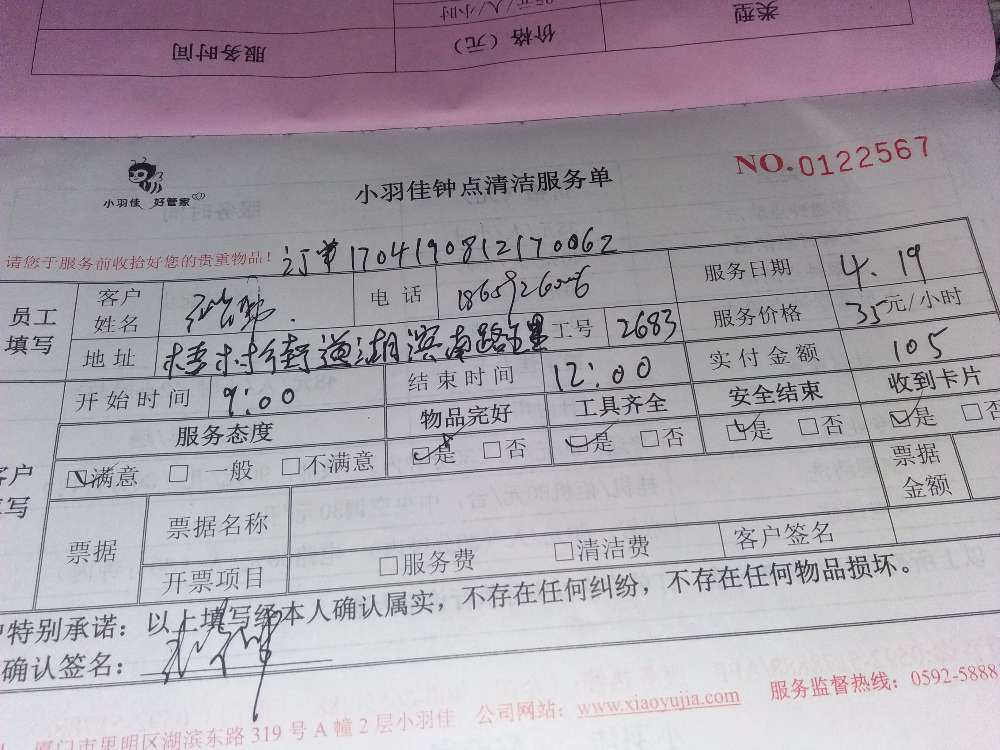 类型
价格（元）
服务时间
元/人/小时
小羽佳 好管家
小羽佳钟点清洁服务单
NO.0122567
请您于服务前收拾好您的贵重物品！ 订单1704190812170062
员工填写 客户姓名 电话 服务日期 4.19
地址 梧村街道湖滨南路 工号 2683 服务价格 35元/小时
开始时间 9:00 结束时间 12:00 实付金额 105
服务态度 物品完好 工具齐全 安全结束 收到卡片
☑满意 □一般 □不满意 ☑是 □否 ☑是 □否 ☑是 □否 ☑是 □否
票据 票据名称 票据金额
开票项目 □服务费 □清洁费 客户签名
特别承诺：以上填写经本人确认属实，不存在任何纠纷，不存在任何物品损坏。
确认签名：
湖滨东路319号A幢2层小羽佳 公司网站：www.xiaoyujia.com 服务监督热线：0592-5888